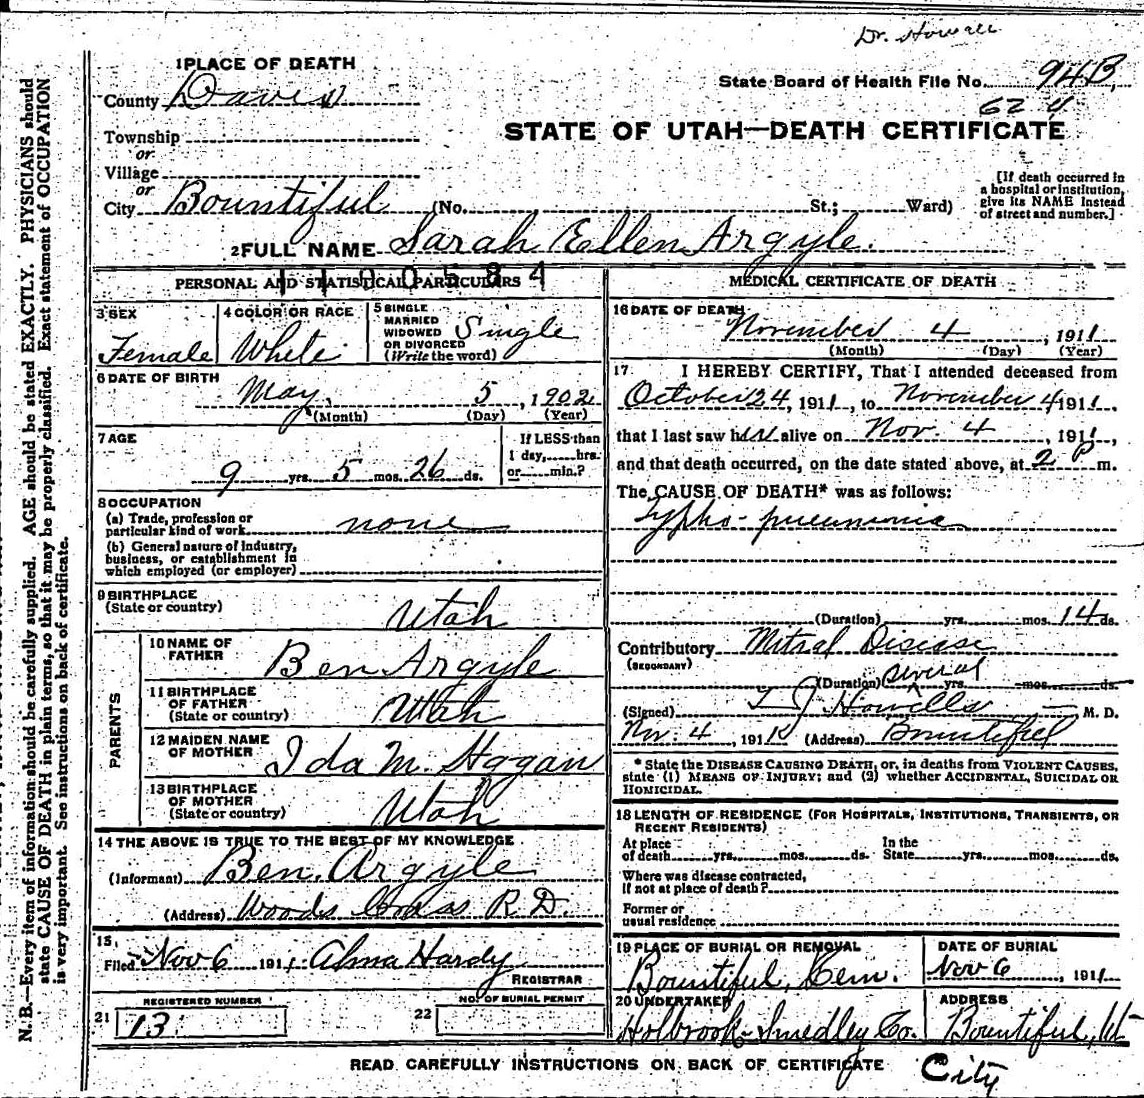 Dr. Howell
1 PLACE OF DEATH
State Board of Health File No. 94B
62
County Davis
STATE OF UTAH—DEATH CERTIFICATE
Township
or
Village
or
City Bountiful (No. St.; Ward)
[If death occurred in
a hospital or institution,
give its NAME instead
of street and number.]
2 FULL NAME Sarah Ellen Argyle.
1100584
PERSONAL AND STATISTICAL PARTICULARS
3 SEX
Female
4 COLOR OR RACE
White
5 SINGLE
MARRIED
WIDOWED
OR DIVORCED
(Write the word)
Single
6 DATE OF BIRTH
May 5, 1902
(Month) (Day) (Year)
7 AGE
9 yrs. 5 mos. 26 ds.
If LESS than
1 day, hrs.
or min.?
8 OCCUPATION
(a) Trade, profession or
particular kind of work none
(b) General nature of industry,
business, or establishment in
which employed (or employer)
9 BIRTHPLACE
(State or country)
Utah
PARENTS
10 NAME OF
FATHER
Ben Argyle
11 BIRTHPLACE
OF FATHER
(State or country)
Utah
12 MAIDEN NAME
OF MOTHER
Ida M. Hogan
13 BIRTHPLACE
OF MOTHER
(State or country)
Utah
14 THE ABOVE IS TRUE TO THE BEST OF MY KNOWLEDGE
(Informant) Ben. Argyle
(Address) Woods Cross R.D.
15,
Filed Nov 6 1911. Alma Hardy
REGISTRAR
REGISTERED NUMBER
21 13
NO. OF BURIAL PERMIT
22
MEDICAL CERTIFICATE OF DEATH
16 DATE OF DEATH
November 4, 1911
(Month) (Day) (Year)
17. I HEREBY CERTIFY, That I attended deceased from
October 24, 1911, to November 4 1911,
that I last saw her alive on Nov. 4, 1911,
and that death occurred, on the date stated above, at 2 P m.
The CAUSE OF DEATH* was as follows:
Typho-pneumonia
(Duration) yrs. mos. 14 ds.
Contributory Mitral Disease
(SECONDARY)
(Duration) several yrs. mos. ds.
(Signed) T J Howells M. D.
Nov. 4, 1911 (Address) Bountiful
* State the DISEASE CAUSING DEATH, or, in deaths from VIOLENT CAUSES,
state (1) MEANS OF INJURY; and (2) whether ACCIDENTAL, SUICIDAL OR
HOMICIDAL.
18 LENGTH OF RESIDENCE (FOR HOSPITALS, INSTITUTIONS, TRANSIENTS, OR
RECENT RESIDENTS)
At place
of death yrs. mos. ds.
In the
State yrs. mos. ds.
Where was disease contracted,
if not at place of death?
Former or
usual residence
19 PLACE OF BURIAL OR REMOVAL
Bountiful, Cem.
DATE OF BURIAL
Nov 6, 1911
20 UNDERTAKER
Holbrook-Smedley Co.
ADDRESS
Bountiful, Ut
READ CAREFULLY INSTRUCTIONS ON BACK OF CERTIFICATE
City
N. B.—Every item of information should be carefully supplied. AGE should be stated EXACTLY. PHYSICIANS should
state CAUSE OF DEATH in plain terms, so that it may be properly classified. Exact statement of OCCUPATION
is very important. See instructions on back of certificate.